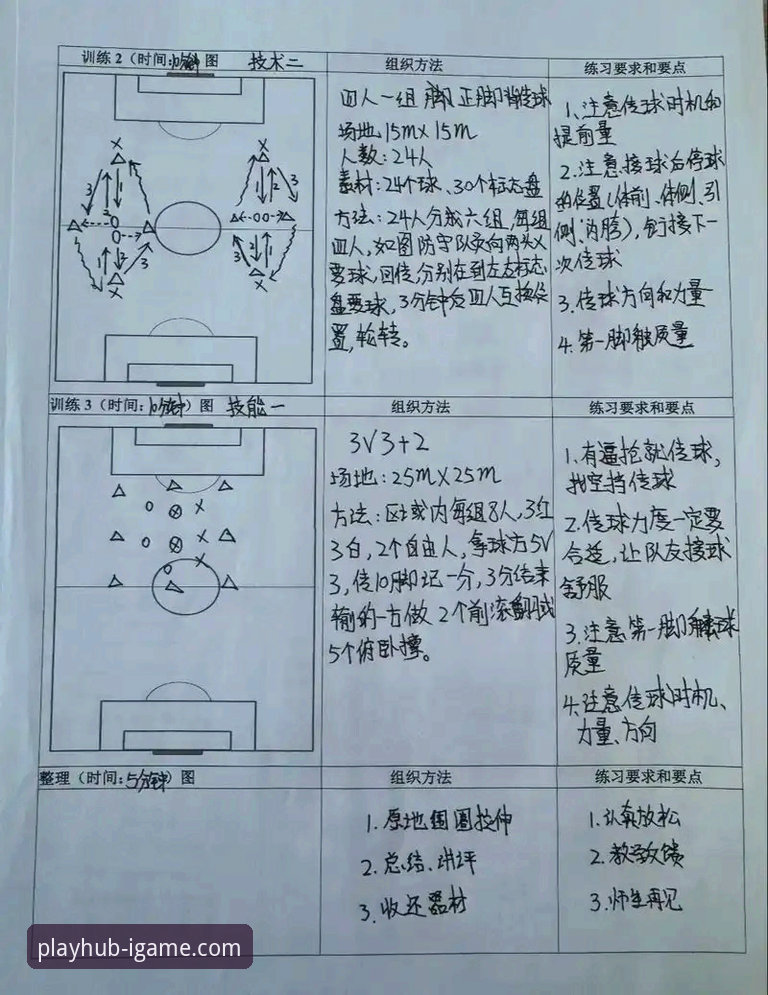 训练2（时间:10分钟 图 技术二
组织方法
练习要求和要点
四人一组 脚正脚背传球
场地15m×15m
人数:24人
素材:24个球、30个标志盘
方法:24人分成六组,每组
四人,如图防守队员向两头
要球,回传,分别在到左右标志
盘要球,3分钟后四人互换位
置,轮转。
1.注意传球时机和
提前量
2.注意接球后停球
的位置(体前、体侧、引
侧、内胯),衔接下一
次传球
3.传球方向和力量
4.第一脚触质量
训练3（时间:10分钟）图 技能一
组织方法
练习要求和要点
3V3+2
场地:25m×25m
方法:区域内每组8人,3红
3白,2个自由人,拿球方5V
3,传10脚记一分,3分结束
输的一方做2个前滚翻或
5个俯卧撑。
1.有逼抢就传球,
找空挡传球
2.传球力度一定要
合适,让队友接球
舒服
3.注意第一脚触球
质量
4.注意传球时机、
力量、方向
整理（时间:5分钟）图
组织方法
练习要求和要点
1.原地围圈拉伸
2.总结、讲评
3.收还器材
1.认真放松
2.教学反馈
3.师生再见
playhub-igame.com